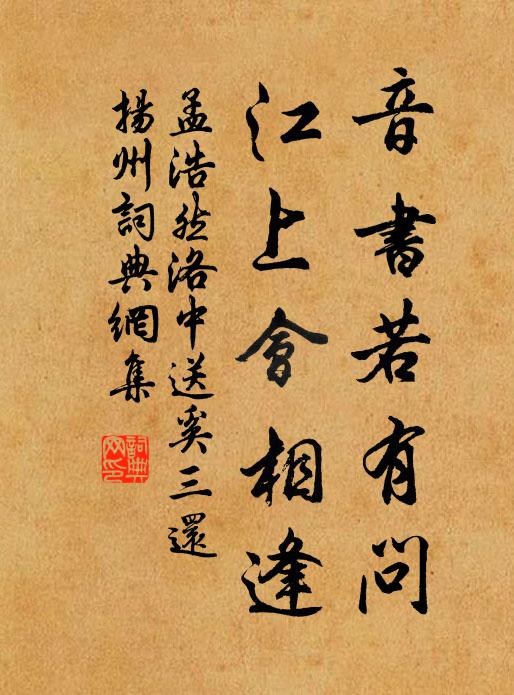 音書若有問
江上會相逢
孟浩然洛中送奚三還
揚州詞典網集
詞典网印